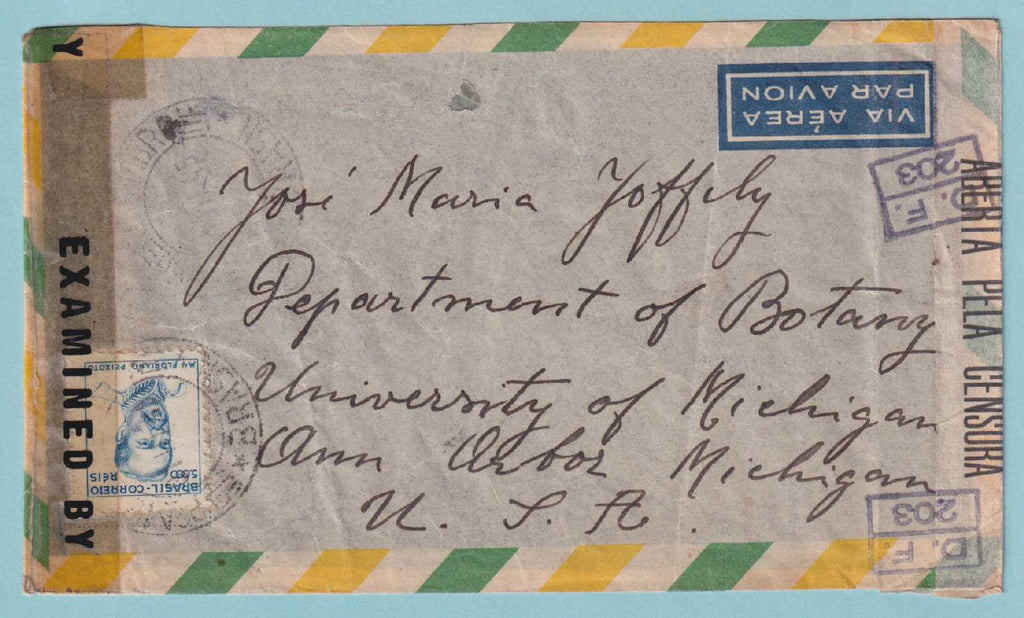 VIA AÉREA
PAR AVION
José Maria Joffely
Department of Botany
University of Michigan
Ann Arbor Michigan
U. S. A.
Y EXAMINED BY
ABERTA PELA CENSURA
D. F.
203
D. F.
203
BRASIL-CORREIO
5.000
RÉIS
MAL FLORIANO PEIXOTO